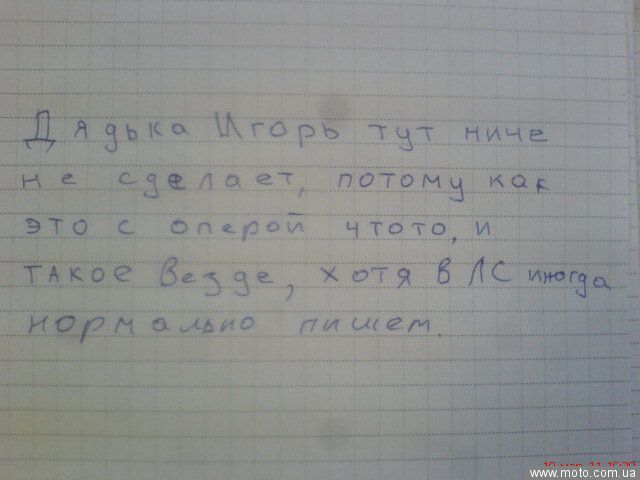 Дядька Игорь тут ниче
не сделает, потому как
это с оперой чтото, и
такое везде, хотя в ЛС иногда
нормально пишет.
www.moto.com.ua